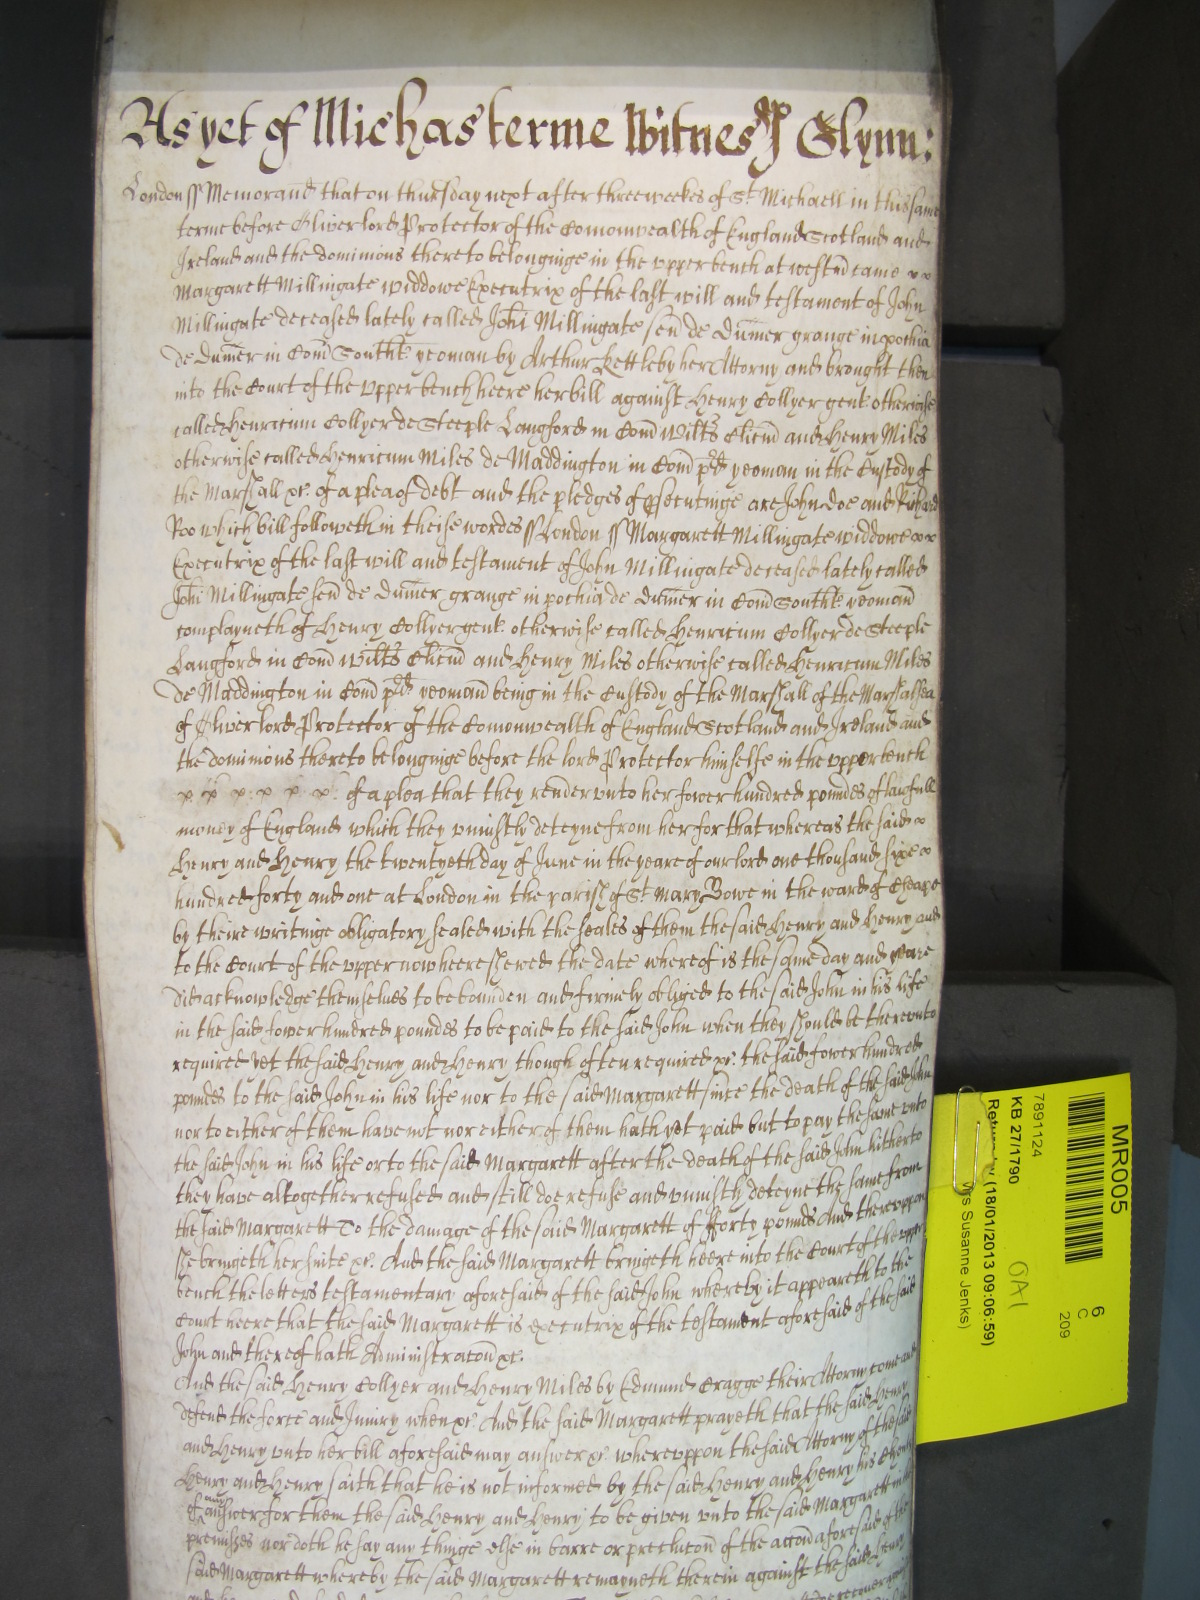 As yet of Michas terme Witnes J Glynn:
London ss Memorand that on thursday next after three weekes of St. Michaell in this same
terme before Oliver lord Protector of the Comonwealth of England Scotland and
Ireland and the dominions thereto belonginge in the upper bench at westm came x x
Margarett Millingate widdowe Executrix of the last will and testament of John
Millingate deceased lately called Johi Millingate sen de Dumer grange in pochia
de Dumer in Com Southt yeoman by Arthur Kettleby her Attorny and brought then
into the Court of the upper bench heere her bill against Henry Collyer gent otherwise
called Henricum Collyer de Steeple Langford in Com Wilts Clicum and Henry Miles
otherwise called Henricum Miles de Maddington in Com pd yeoman in the Custody of
the Marshall xc. of a plea of debt and the pledges of psecutinge are John Doe and Richard
Roo which bill followeth in theise wordes ss London ss Margarett Millingate widdowe x x
Executrix of the last will and testament of John Millingate deceased lately called
Johi Millingate sen de Dumer grange in pochia de Dumer in Com Southt yeoman
complayneth of Henry Collyer gent. otherwise called Henricum Collyer de Steeple
Langford in Com Wilts and Henry Miles otherwise called Henricum Miles
de Maddington in Com pd yeoman being in the Custody of the Marshall of the Marshalsea
of Oliver lord Protector of the Comonwealth of England Scotland and Ireland and
the dominions thereto belonginge before the lord Protector himselfe in the upper bench
x x x x x x of a plea that they render unto her fower hundred poundes of lawfull
money of England which they uniustly deteyne from her for that whereas the said
Henry and Henry the twentyeth day of June in the yeare of our lord one thousand sixe
hundred forty and one at London in the parish of St. Mary Bowe in the ward of Cheape
by theire writinge obligatory sealed with the seales of them the said Henry and Henry and
to the Court of the upper now heere shewed the date whereof is the same day and yeare
did acknowledge themselves to be bounden and firmely obliged to the said John in his life
in the said fower hundred poundes to be paid to the said John when they should be thereunto
required yet the said Henry and Henry though often required xc. the said fower hundred
poundes to the said John in his life nor to the said Margarett since the death of the said John
nor to either of them have not nor either of them hath yet paid but to pay the same unto
the said John in his life or to the said Margarett after the death of the said John hitherto
they have altogether refused and still doe refuse and uniustly deteyne the same from
the said Margarett To the damage of the said Margarett of fforty pounds And thereuppon
she bringeth her suite xc. And the said Margarett bringeth heere into the Court of the upper
bench the letters testamentary aforesaid of the said John whereby it appeareth to the
Court heere that the said Margarett is executrix of the testament aforesaid of the said
John and thereof hath Administracon xc.
And the said Henry Collyer and Henry Miles by Edmund Cragge their Attorny come and
defend the force and Iniury when xc. And the said Margarett prayeth that the said Henry
and Henry unto her bill aforesaid may answer xc. whereuppon the said Attorny of the said
Henry and Henry saith that he is not informed by the said Henry and Henry his Clyents
of any answer for them the said Henry and Henry to be given unto the said Margarett in the
premisses nor doth he say any thinge else in barre or preclucon of the accon aforesaid of the
said Margarett whereby the said Margarett remayneth therein against the said Henry
MR005
6
C
209
7891124
KB 27/1790
(18/01/2013 09:06:59)
Susanne Jenks)